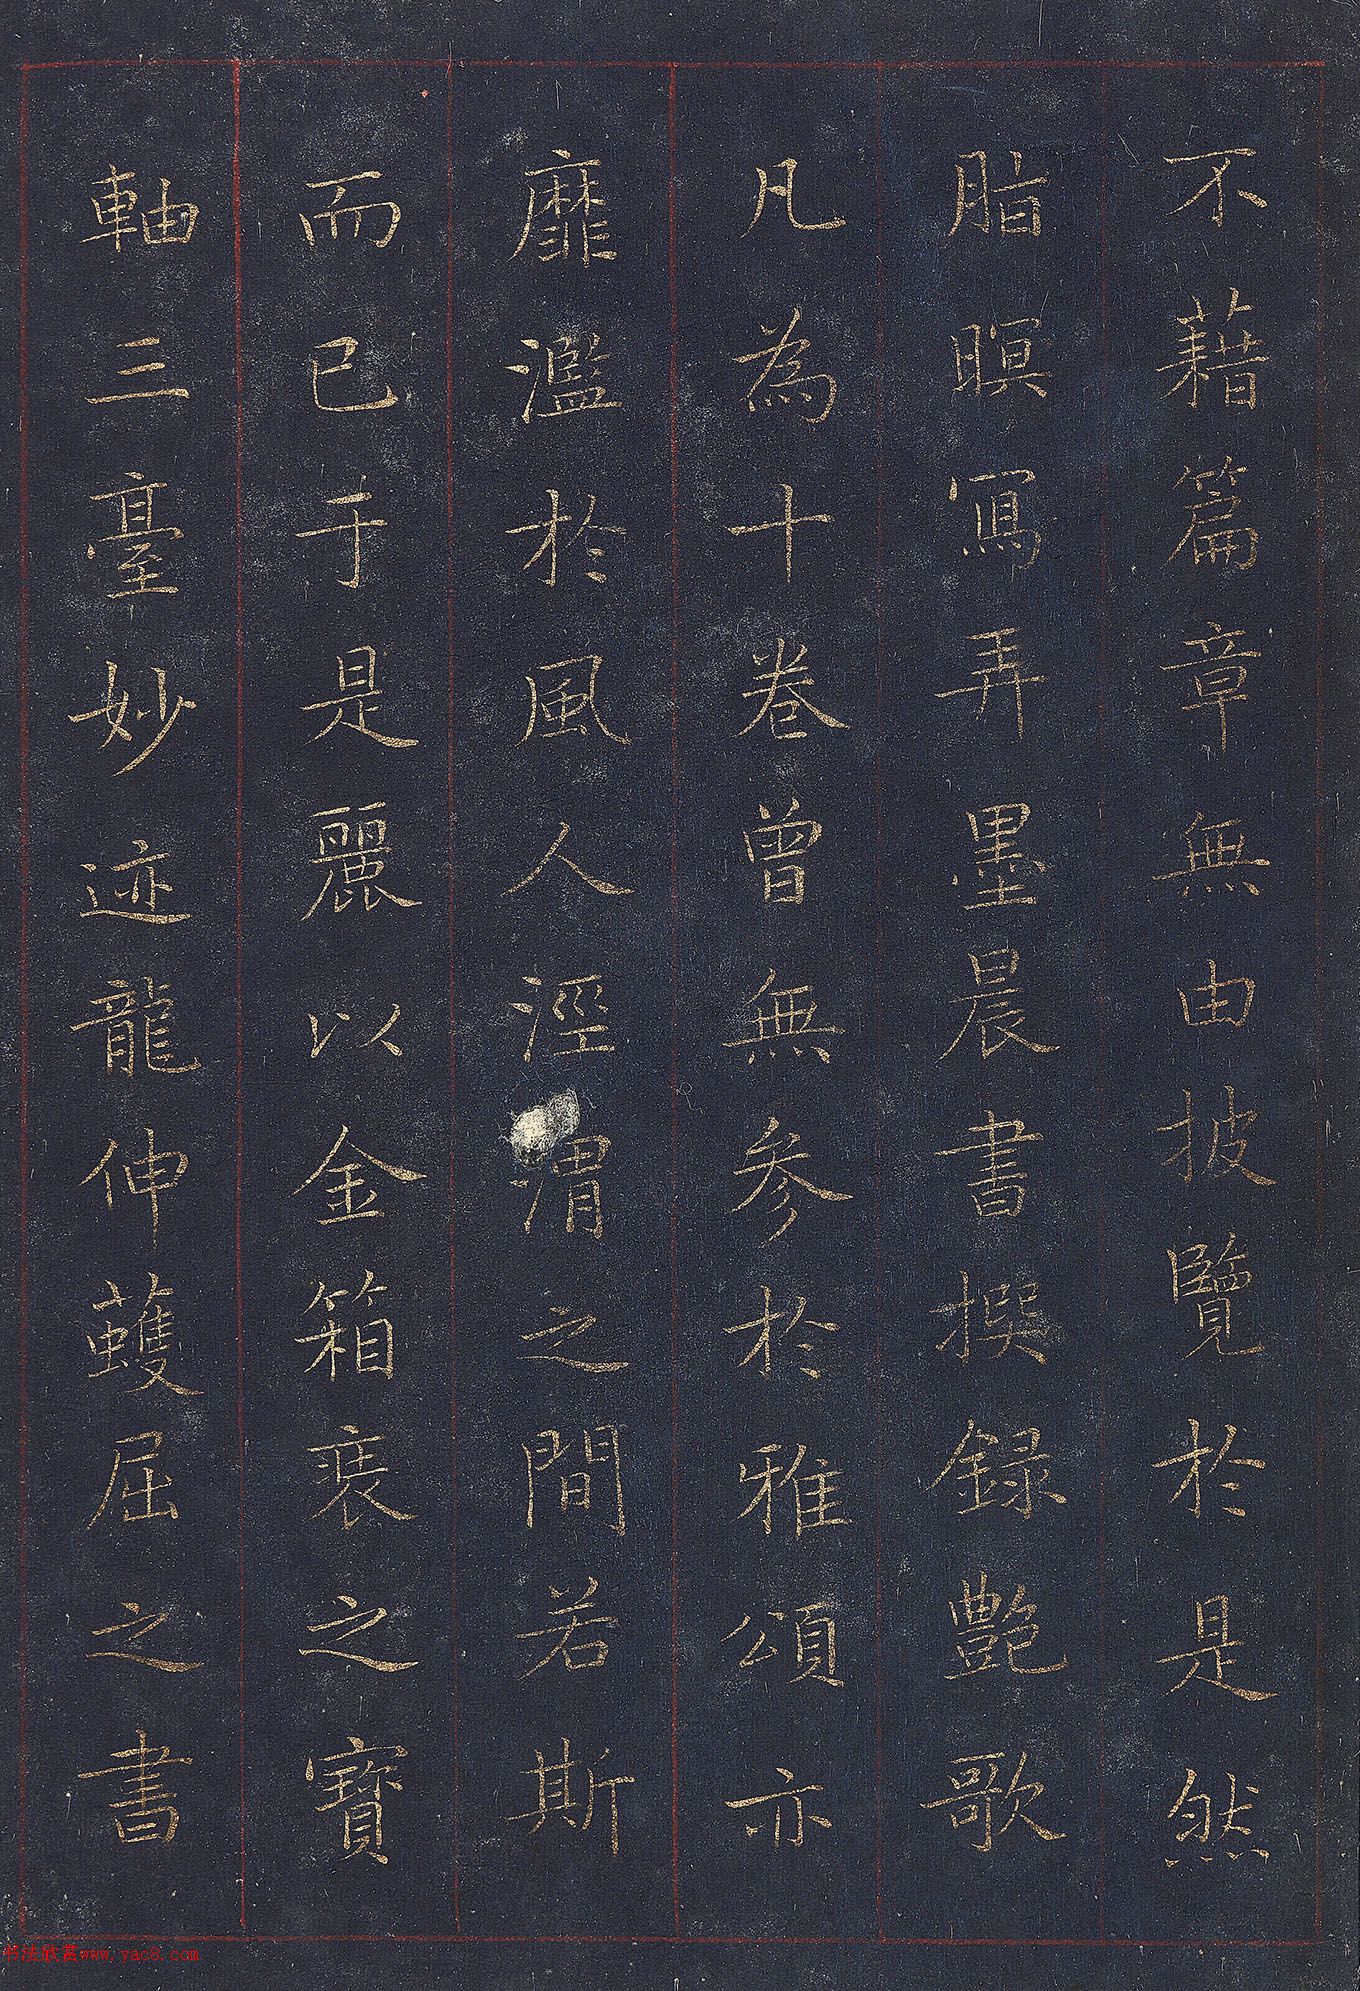 不藉篇章無由披覽於是然
脂暝寫弄墨晨書撰録艶歌
凡為十卷曾無參於雅頌亦
靡濫於風人涇渭之間若斯
而已于是麗以金箱裝之寶
軸三臺妙迹龍伸蠖屈之書
书法欣赏www.yac8.com